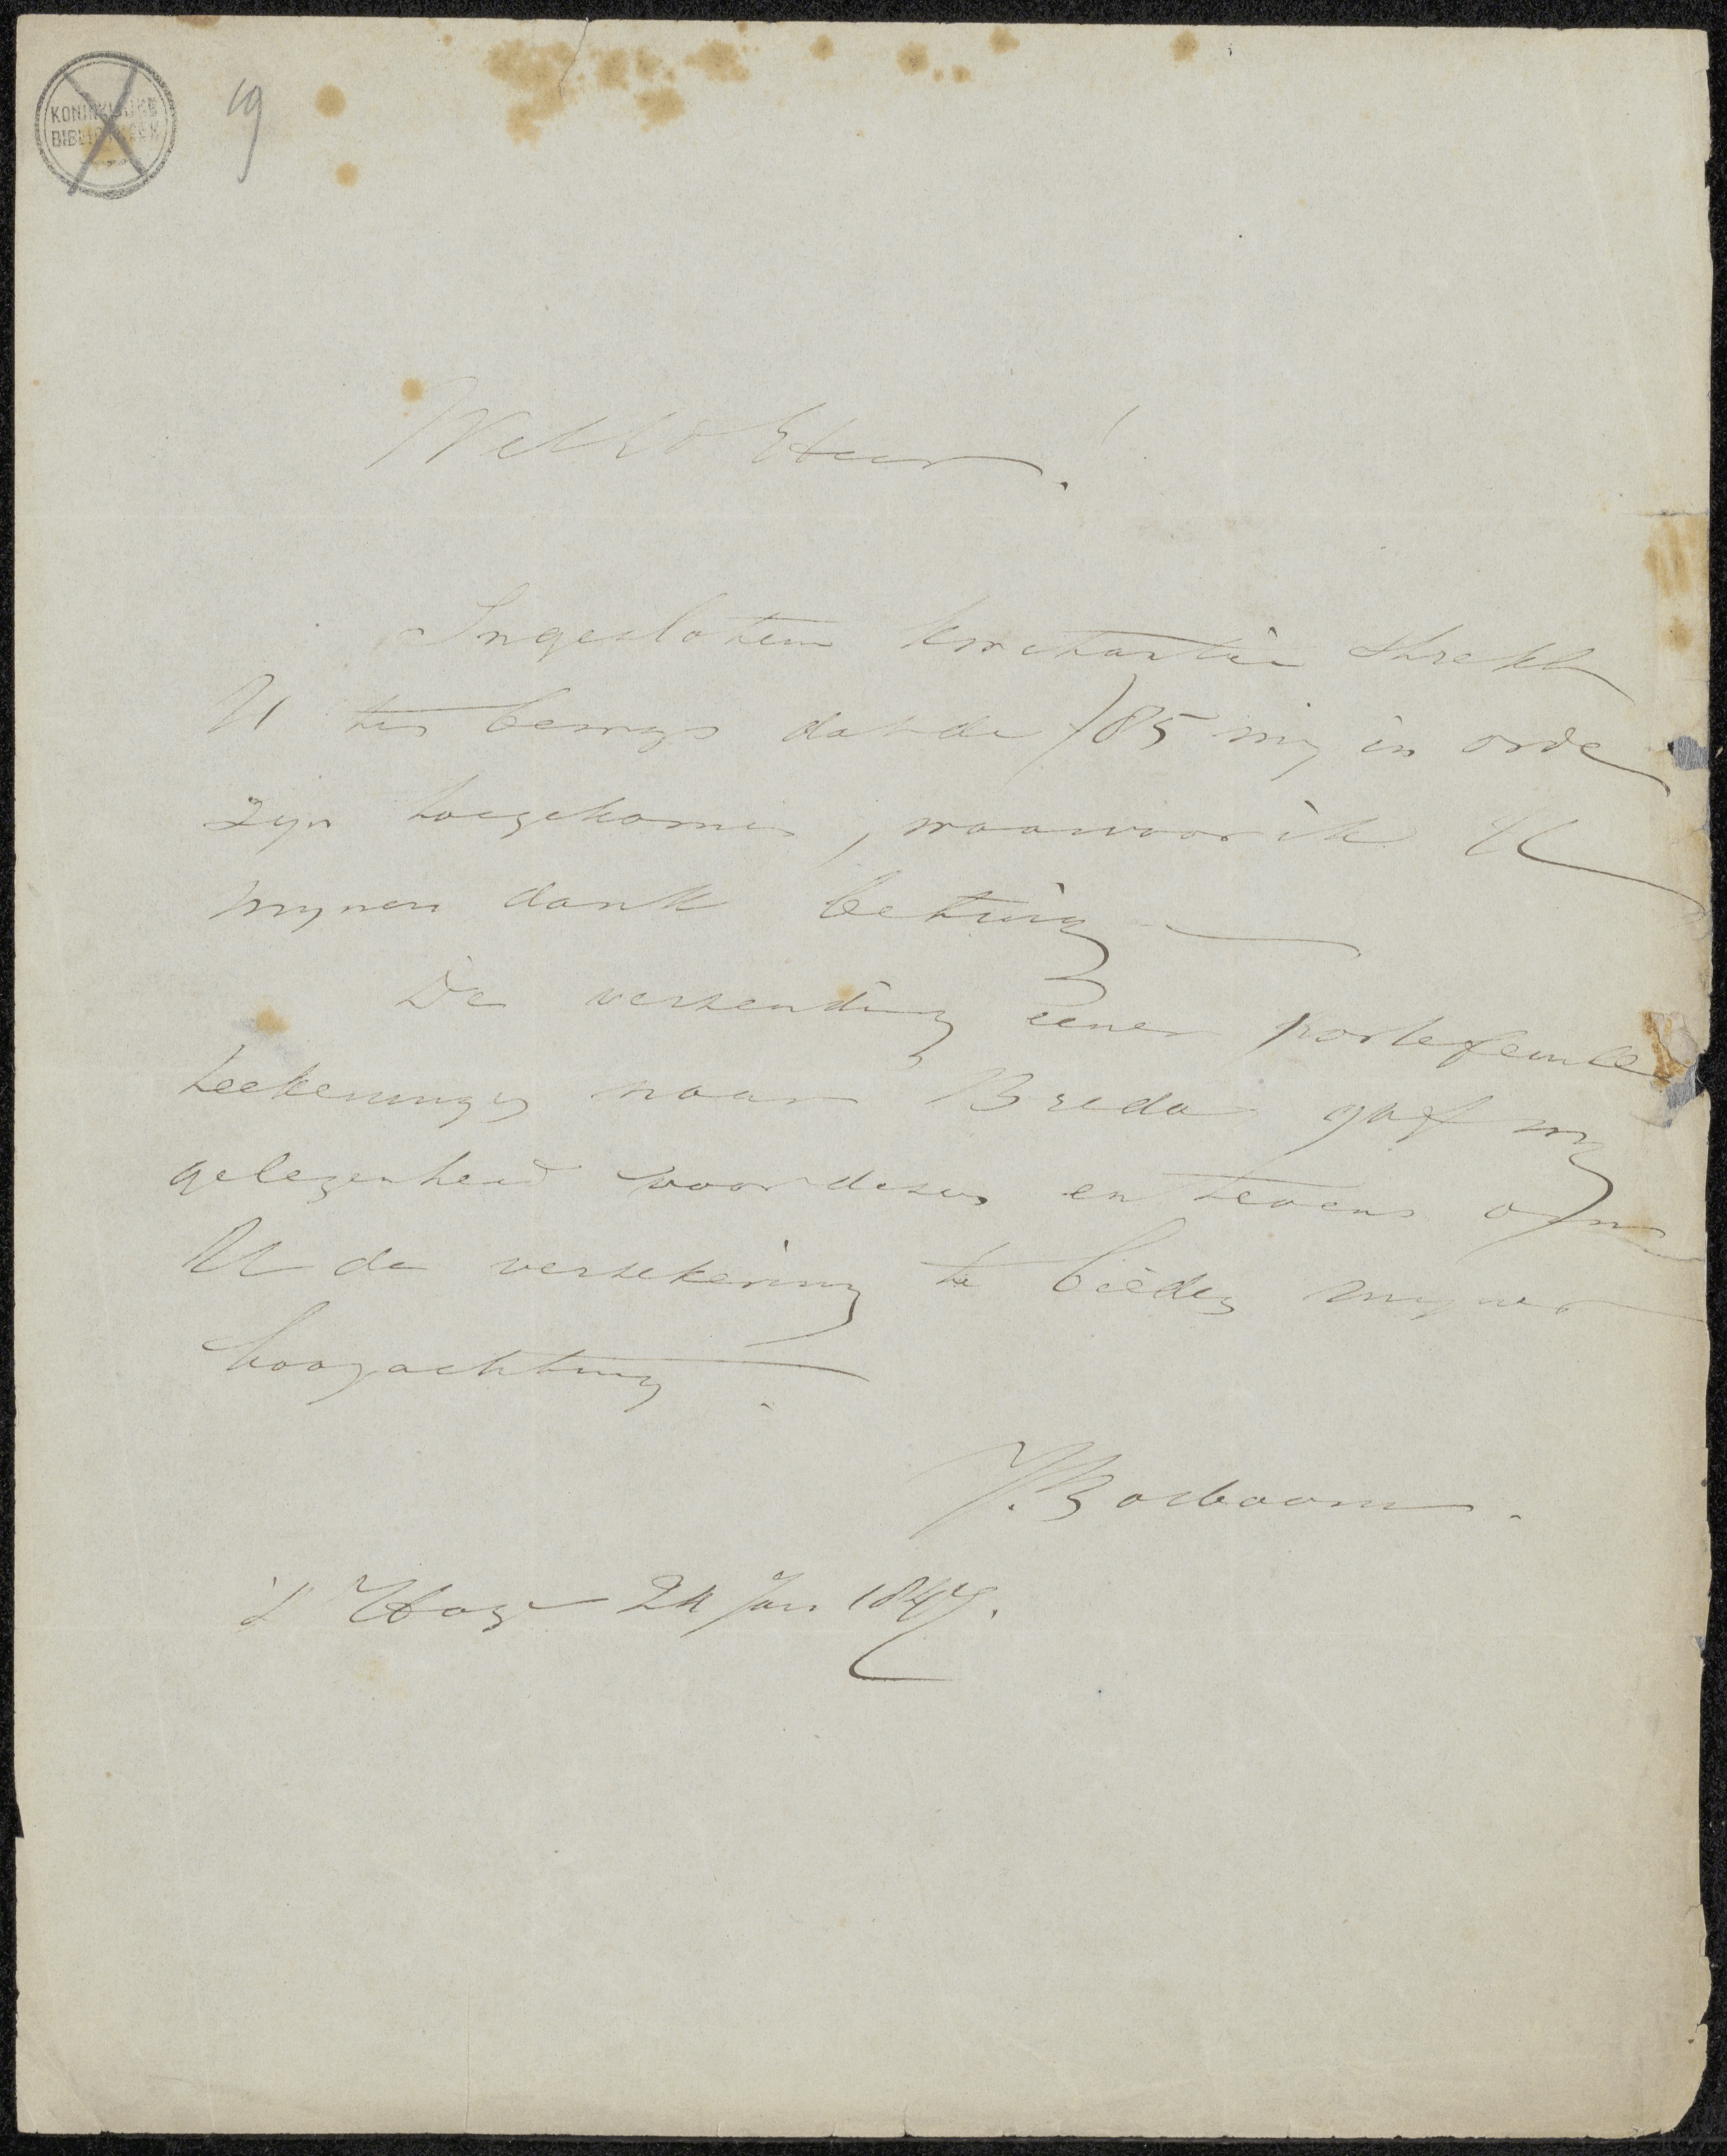 KONINKLIJKE
BIBLIOTHEEK
19
Heer!
Ingesloten kwitantie strekt
U ten bewys dat de ƒ85 mij in orde
zijn toegekomen, waarvoor ik U
mynen dank betuig
De verzending eener portefeuille
teekeningen naar Breda gaf my
gelegenheid voor deze en tevens om
U de verzekering te bieden mijner
hoogachting.
J. Bosboom.
's Hage 24 Jan 1847.